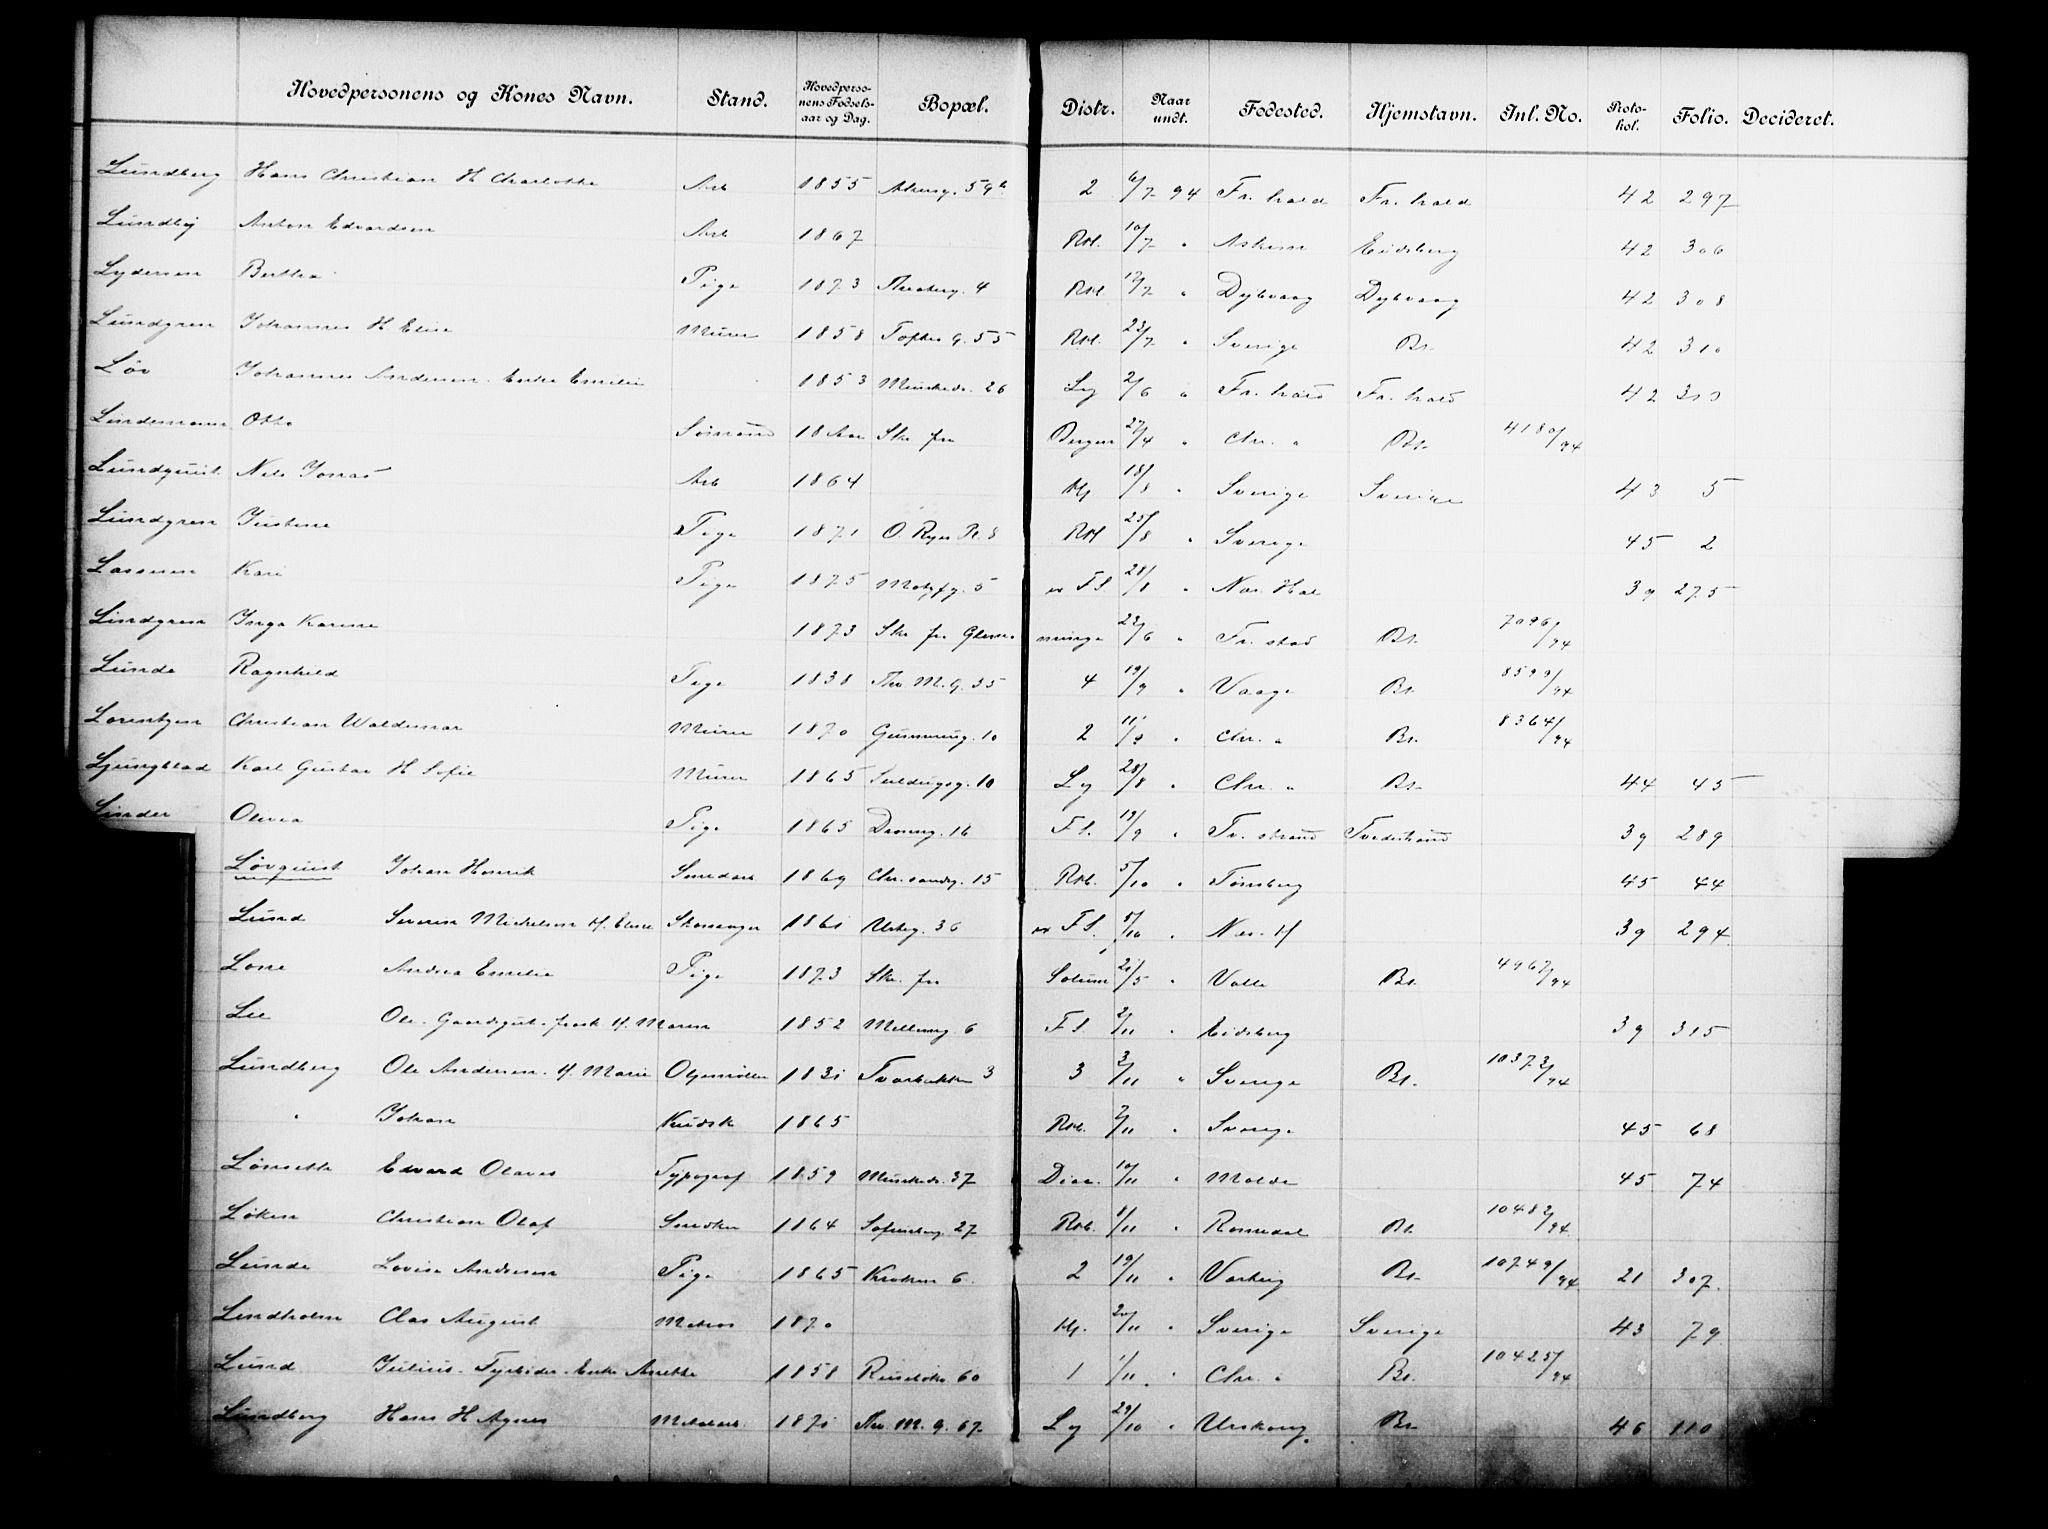 Hovedpersonens og Kones Navn. Stand. Hovedpersonens Fødselsaar og Dag. Bopæl. Distr. Naar undt. Fødested. Hjemstavn. Inl. No. Protokol. Folio. Decideret.
Lundberg Hans Christian H Charlotte Arb 1855 Akersg. 59b 2 6/7 94 Fr. hald Fr. hald 42 297
Lundby Anton Edvardsen Arb 1867 Rkl. 10/7 " Askim Eidsberg 42 306
Lydersen Bertha Pige 1873 4 Rkl 12/7 " Dybvaag Dybvaag 42 308
Lundgren Johannes H Elise Murer 1858 Toftes G. 55 Rkl. 23/7 " Sverige Bt. 42 310
Löv Johannes Andersen Enke Emilie 1853 Munkeds. 26 Ly 2/6 " Fr. hald Fr. hald 42
Lindemann Otto Sömand 18 Aar Skr fra Bergen 27/4 " Chr. " Bt. 4180/94
Lundquist Nils Jonas Arb 1864 Hj 18/8 " Sverige Sverige 43 5
Lundgren Justine Pige 1871 O. Ryes Pl. 8 Rkl 25/8 " Sverige 45 2
Larsen Kari Pige 1875 Motzfg. 5 FS. 28/8 " Nes. Hal 39 275
Lindgren Inga Karine 1873 Skr fra Glemminge 22/6 " Fr. stad Bt. 7096/94
Lunde Ragnhild Pige 1838 Thv. M. G. 35 4 19/9 " Vaage Bt. 8599/94
Lorentzen Christian Waldemar Murer 1870 10 2 " Chr. " Bt. 8364/94
Ljungblad Karl Gustav H Sofie Murer 1865 10 Ly 28/8 " Chr. " Bt. 44 45
Linder Olivia Pige 1865 Dronng. 16 FS. 19/9 " Tv. strand Tvedestrand 39 289
Lövquist Johan Henrik Smedarb 1869 Chr. sandg. 15 Rkl. 5/10 " Tönsberg 45 44
Lund Severin Michelsen H. Elise 1861 Urteg. 36 FS. 8/10 " Nes. H 39 294
Lone Andrea Emilie Pige 1873 Skr. fra Solum 21/5 " Valle Bt. 4967/94
Lie Ole H. Maren 1852 Mellemg 6 FS 2/11 " Eidsberg 39 315
Lundberg Ole Andersen H. Marie 1831 Tvarbakken 3 3 3/11 " Sverige Bt. 10373/94
" Johan Kudsk 1865 Rkl. 7/11 " Sverige 45 68
Lönseth Edvard Olaves Typograf 1859 Munkeds. 37 Dia. 10/11 " Molde 45 74
Löken Christian Olaf Snedker 1864 Sofienberg. 27 Rkl. 8/11 " Romedal Bt. 10482/94
Lunde Lovise Andersen Pige 1865 Kroken 6. 2 19/11 " Varteig Bt. 10749/94 21 307
Lindholm Clas August Matros 1870 Hj. 20/11 " Sverige Sverige 43 79
Lund Julius Enke Anette 1858 Ruselökv 60 1 1/11 " Chr. " Bt. 10425/94
Lundberg Hans H Agnes 1871 Thv. M. G. 67 Ly 29/10 " Urskoug Bt 46 110